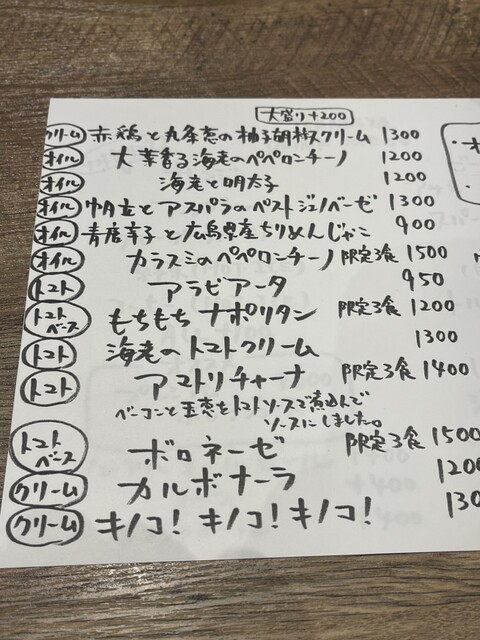 大盛り+200
クリーム 赤鶏と九条葱の柚子胡椒クリーム 1300
オイル 大葉香る海老のペペロンチーノ 1200
オイル 海老と明太子 1200
オイル 帆立とアスパラのペストジェノベーゼ 1300
オイル 青唐辛子と広島県産ちりめんじゃこ 900
オイル カラスミのペペロンチーノ 限定3食 1500
トマト アラビアータ 950
トマトベース もちもちナポリタン 限定3食 1200
トマト 海老のトマトクリーム 1300
トマト アマトリチャーナ 限定3食 1400
ベーコンと玉葱をトマトソースで煮込んで
ソースにしました。
トマトベース ボロネーゼ 限定3食 1500
クリーム カルボナーラ 1200
クリーム キノコ!キノコ!キノコ! 130